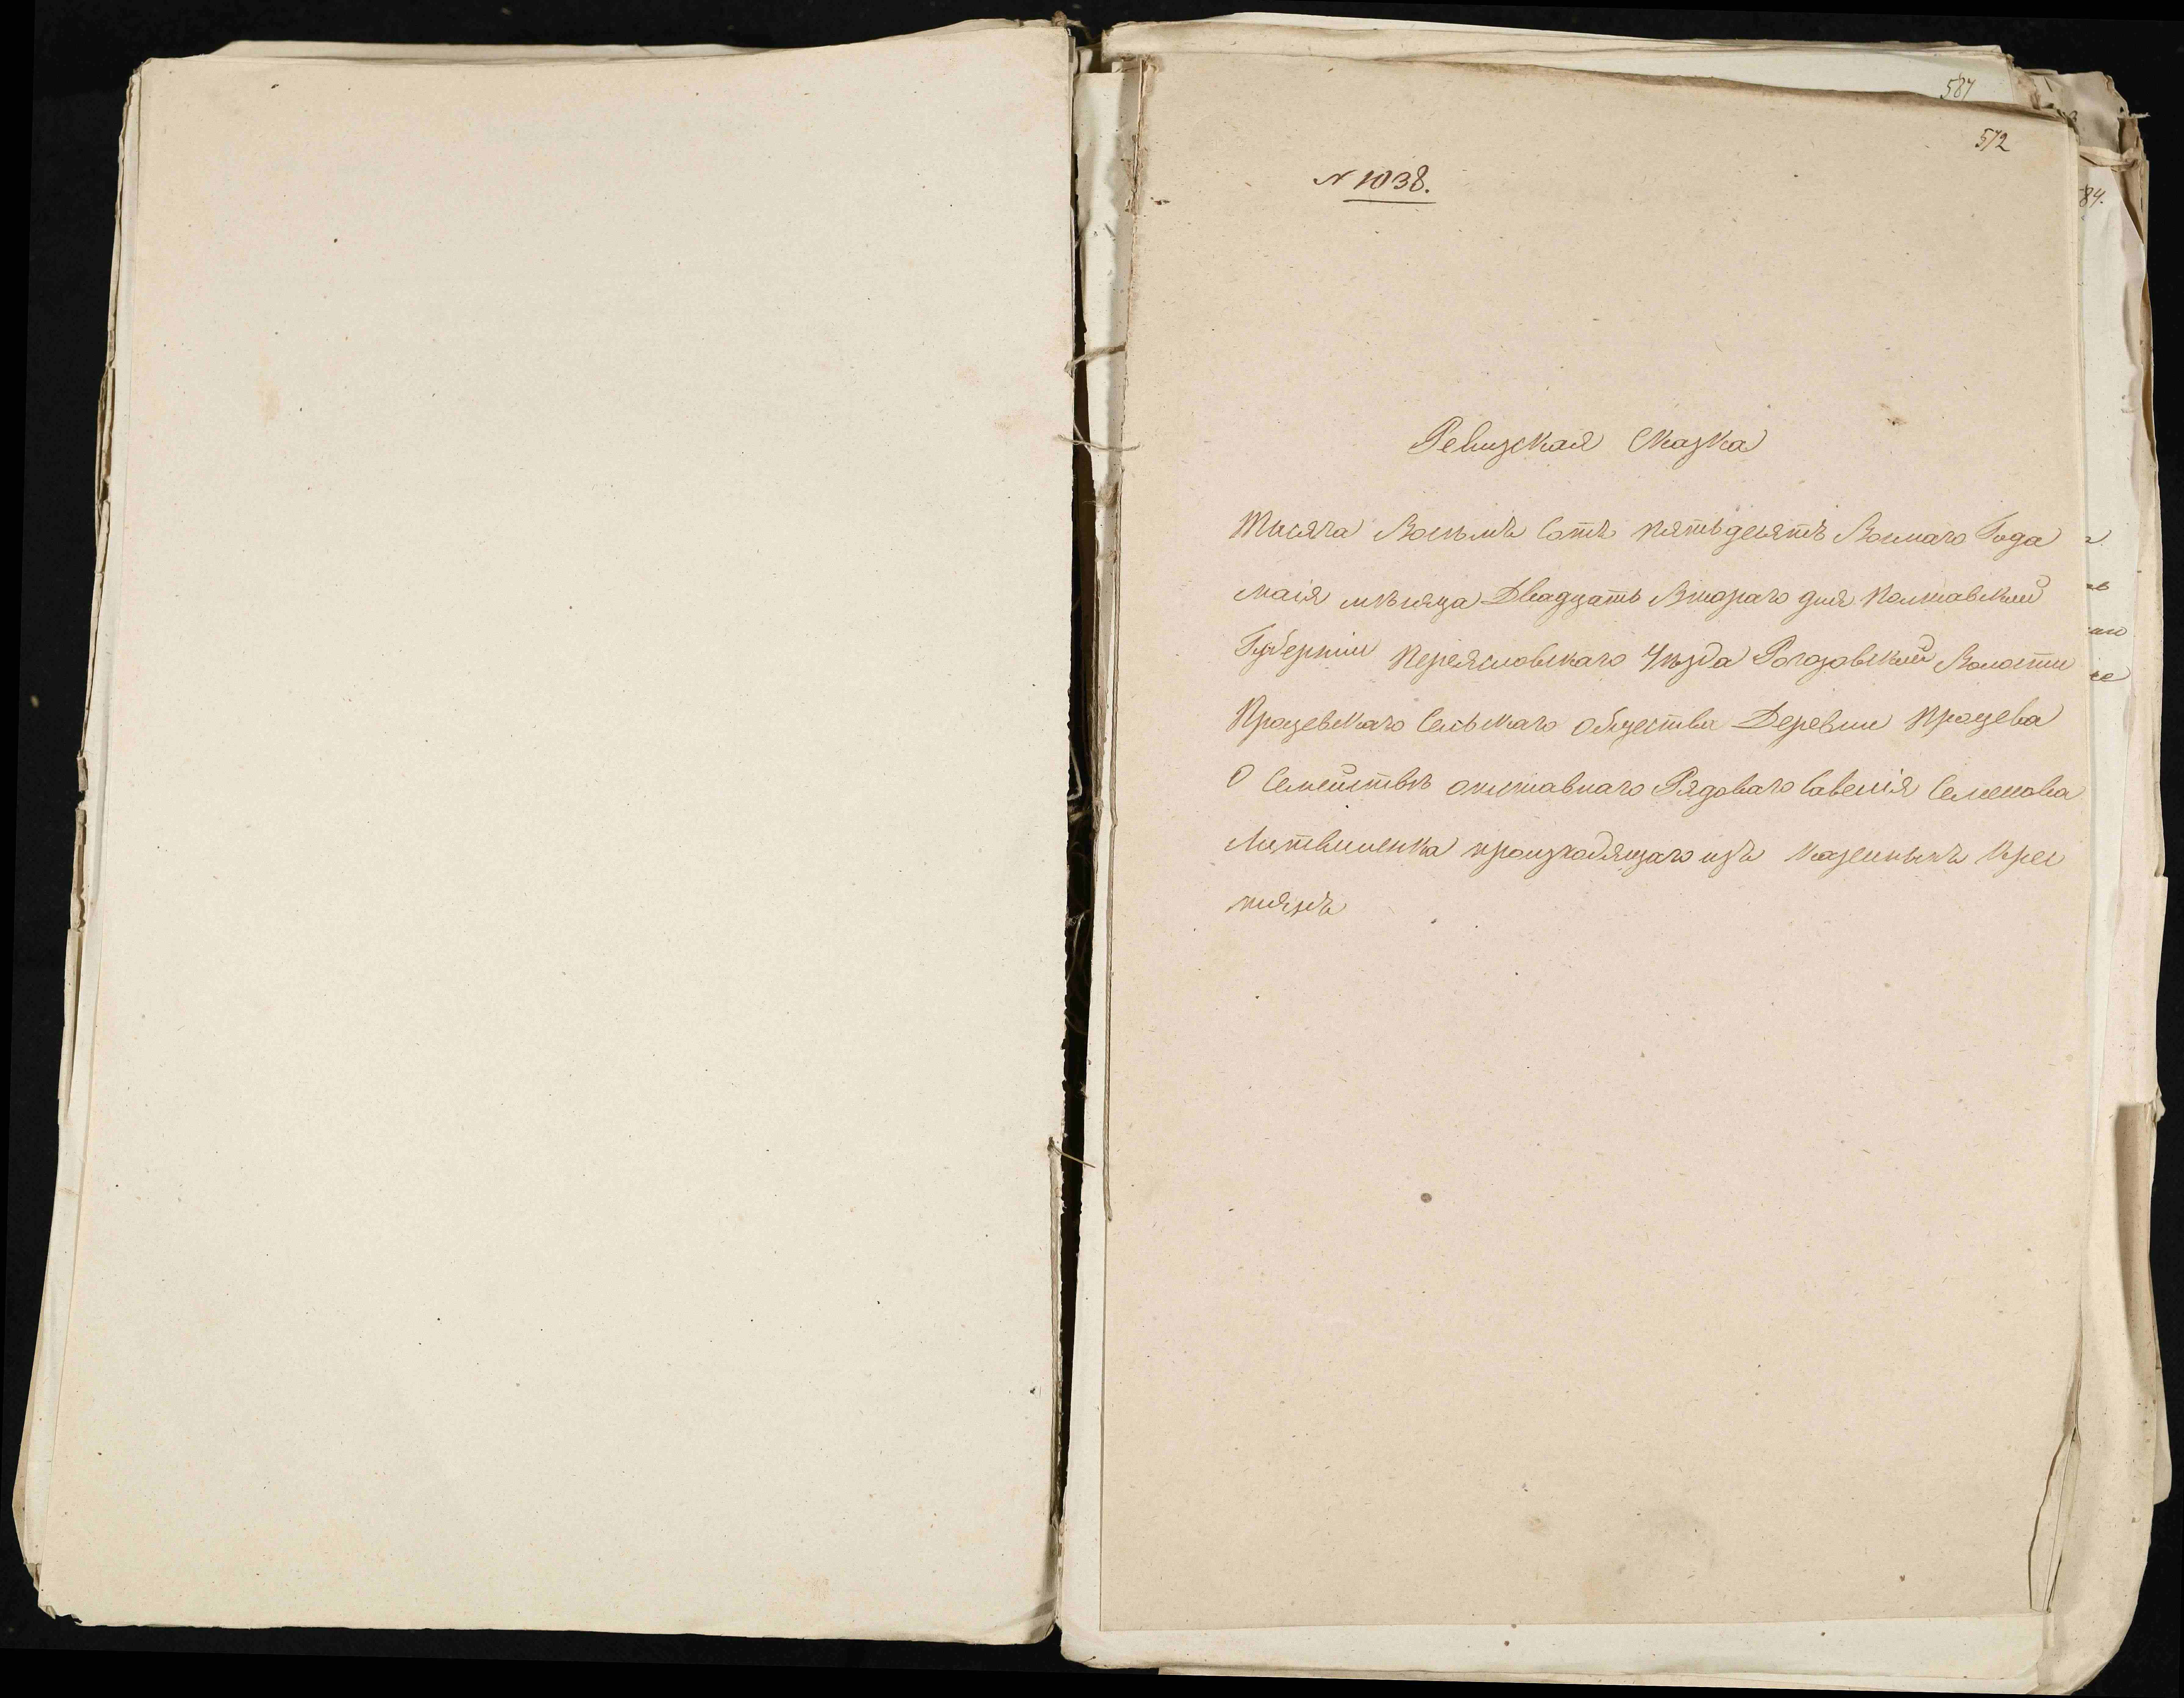 587
572
84.
N 1038.
Ревизская Сказка
Тысяча Восемь Сотъ пятьдесятъ Восмаго Года
маія мѣсяца Двадцать Втораго дня Полтавской
Губерніи Переясловскаго Уѣзда Рогозовской Волости
Процевскаго Сельскаго Общества Деревни Процева
О Семействѣ отставнаго Рядоваго Савелія Семенова
Литвиненка произходящаго изъ казенныхъ крес
тьянъ